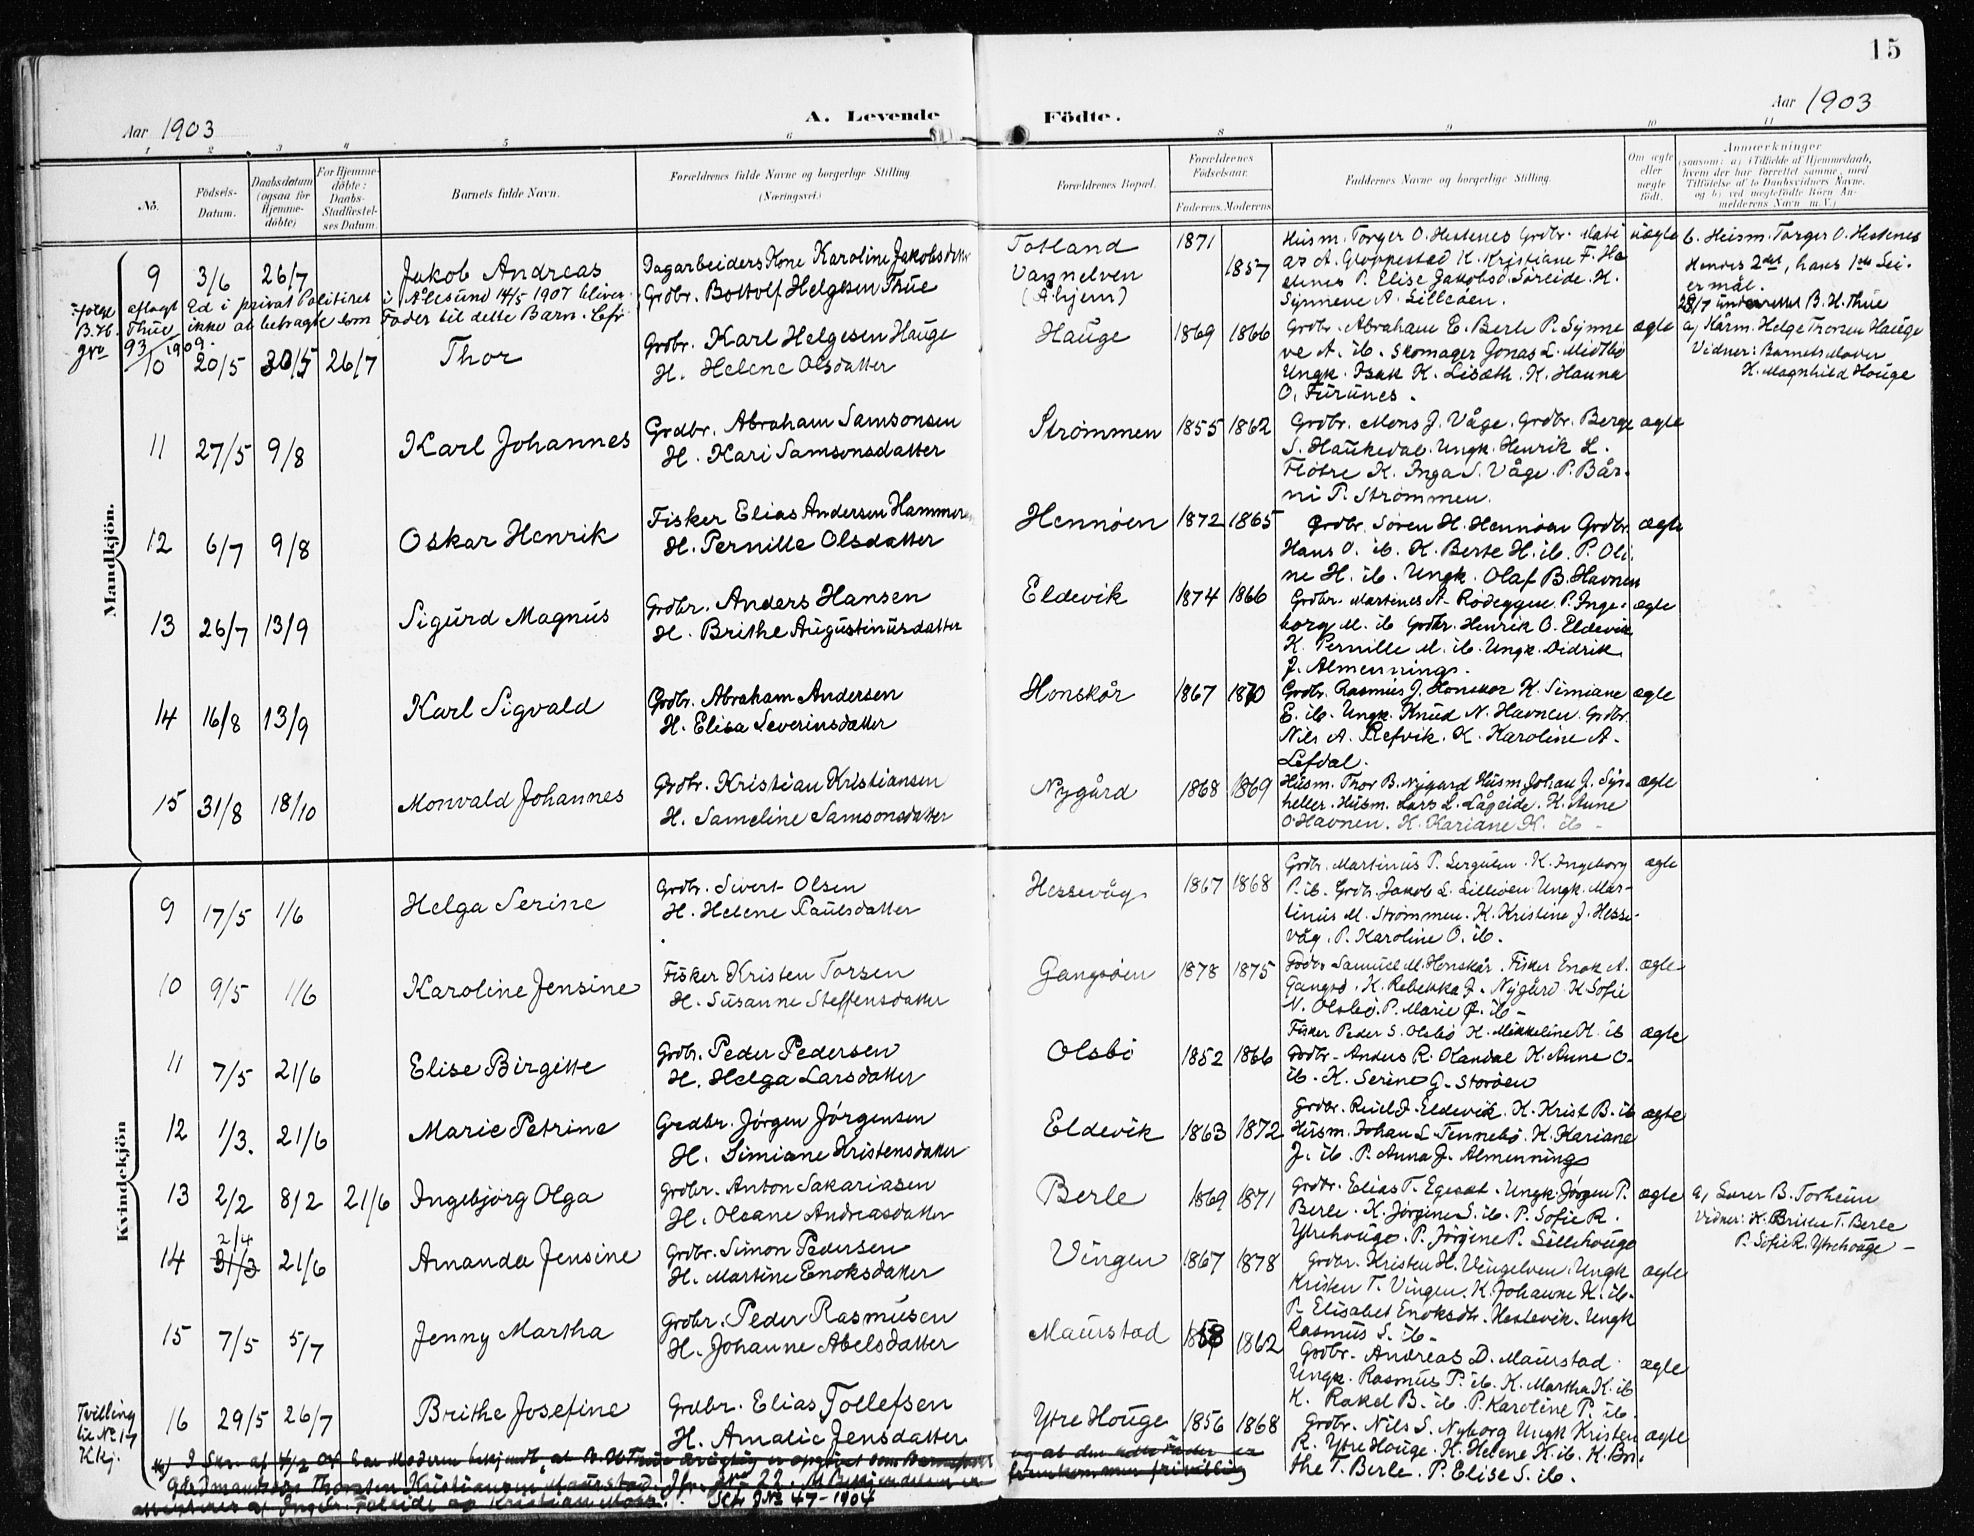 15
Aar 1903
A. Levende
Födte.
Aar 1903
1 2 3 4 5 6 8 9 10 11
No.
Födsels-Datum.
Daabsdatum (ogsaa for Hjemmedöbte)
For Hjemmedöbte: Daabs-Stadfæstelses Datum.
Barnets fulde Navn.
Forældrenes fulde Navne og borgerlige Stilling (Næringsvei.)
Forældrenes Bopæl.
Forældrenes Födselsaar.
Faderens. Moderens.
Faddernes Navne og borgerlige Stilling.
Om ægte eller uægte födt.
Anmærkninger
(saasom: a) i Tilfælde af Hjemmedaab, hvem der har forrettet samme, med Tilföielse af to Daabsvidners Navne, og b) ved uægtefödte Börn Anmelderens Navn m. V.)
Mandkjön.
9 3/6 26/7 Jakob Andreas
Dagarbeiders Kone Karoline Jakobsdtter
Grdbr. Bottolf Helgesen Thue
Totland
Vagnelven
(Åhjem)
1871 1857
Husm. Torger O. Hestenes Grdbr.
as A. Gloppestad K. Kristiane F. He
stenes P. Elise Jakobsd. Søreide. K.
Synneve A. Lilleöen.
uægte
b. Husm. Torger O. Hestenes
Hendes 2det, hans 1ste Lei-
ermål.
28/7 underrettet B. H. Thue
Ifølge aflagt Ed i privat Politiret i Ålesund 14/5 1907 bliver
B. H. Thue ikke at betragte som Fader til dette Barn. Cfr
Jno 93/1909.
10 20/5 30/5 26/7 Thor
Grdbr. Karl Helgesen Hauge
H. Helene Olsdatter
Hauge
1869 1866
Grdbr. Abraham E. Berle P. Synne
ve A. ib. Skomager Jonas L. Midtbø
Ungk. Isak K. Liseth. K. Hanna
O. Furunes.
ægte
a) Kårm. Helge Thorsen Hauge
Vidner: Barnets Moder
K. Magnhild Houge
11 27/5 9/8 Karl Johannes
Grdbr. Abraham Samsonsen
H. Kari Samsonsdatter
Strømmen
1855 1862
Grdbr. Mons J. Våge. Grdbr. Berge
S. Haukedal. Ungk. Henrik L.
Fløtre K. Inga S. Våge. P. Bår-
ni P. Strømmen.
ægte
12 6/7 9/8 Oskar Henrik
Fisker Elias Andersen Hammeren
H. Pernille Olsdatter
Hennöen
1872 1865
Grdbr. Sören H. Hennöen Grdbr.
Hans O. ib. K. Berte H. ib. P. Oli-
ne H. ib. Ungk. Olaf B. Havnen
ægte
13 26/7 13/9 Sigurd Magnus
Grdbr. Anders Hansen
H. Brithe Augustinusdatter
Eldevik
1874 1866
Grdbr. Martines A. Rødeggen. P. Inge-
borg M. ib Grdbr. Henrik O. Eldevik
K. Pernille M. ib. Ungk. Didrik
J. Almenning.
ægte
14 16/8 13/9 Karl Sigvald
Grdbr. Abraham Andersen
H. Elisa Severinsdatter
Honskår
1867 1870
Grdbr. Rasmus J. Honskor K. Simiane
E. ib. Ungk. Knud N. Havnen. Grdbr.
Nils A. Refvik. K. Karoline A.
Lefdal.
ægte
15 31/8 18/10 Monvald Johannes
Grdbr. Kristian Kristiansen
H. Sameline Samsonsdatter
Nygård
1868 1869
Husm. Thor B. Nygard Husm. Johan J. Sör-
heller. Husm. Lars L. Lågeide. K. Anne
O. Havnen. K. Kariane K. ib
ægte
Kvindekjön
9 17/5 1/6 Helga Serine
Grdbr. Sivert Olsen
H. Helene Paulsdatter
Hessevåg
1867 1868
Grdbr. Martinus P. K. Ingeborg
P. ib. Grdbr. Jakob L. Lilleöen Ungk. Mar-
tinus M. Strømmen. K. Kristine J. Hesse-
våg. P. Karoline O. ib.
ægte
10 9/5 1/6 Karoline Jensine
Fisker Kristen Torsen
H. Susanne Steffensdatter
Gangsöen
1878 1875
Grdbr Samuel M. Honskår. Fisker Enok A.
Gangsö. K. Rebekka J. Nygård K Sofie
N. Olsbö. P. Marie ib
ægte
11 7/5 21/6 Elise Birgitte
Grdbr. Peder Pedersen
H. Helga Larsdatter
Olsbö
1852 1866
Fisker Peder S. Olsbö K. Mikkeline K. ib
Grdbr. Anders R. K. Anne O.
ib. K. Serine G. Storöen
ægte
12 1/3. 21/6 Marie Petrine
Grdbr. Jörgen Jörgensen
H. Simiane Kristensdatter
Eldevik
1863 1872
Grdbr. J. Eldevik. K. Krist B. ib
Husm. Johan L. Tennebö. K. Kariane
J. ib. P. Anna J. Almenning
ægte
13 2/2 8/2 21/6 Ingebjörg Olga
Grdbr. Anton Sakariasen
H. Olsane Andreasdatter
Berle
1869 1871
Grdbr. Elias T. Egeset. Ungk. Jörgen P.
Berle. K. Jörgine S. ib. P. Sofie R.
Ytrehouge. P. Jörgine P. Lillehouge
ægte
a) Lærer B. Torheim
Vidner: K. Brithe T. Berle
P. Sofie R. Ytrehouge
14 2/4 31/3 21/6 Amanda Jensine
Grdbr. Simon Pedersen
H. Martine Enoksdatter
Vingen
1867 1878
Grdbr. Kristen H. Vingelven. Ungk
Kristen T. Vingen. K. Johanne K. ib.
P. Elisabet Enoksdtr. Hestevik. Ungk
Rasmus S. ib.
ægte
15 7/5 5/7 Jenny Martha
Grdbr. Peder Rasmusen
H. Johanne Abelsdatter
Maurstad
1858 1862
Grdbr. Andreas D. Maurstad
Ungk. Rasmus P. ib. K. Martha K. ib
K. Rakel B. ib. P. Karoline P. ib.
ægte
Tvilling
til No 17
Kkj.
16 29/5 26/7 Brithe Josefine
Grdbr. Elias Tollefsen
H. Amalie Jensdatter
Ytre Houge
1856 1868
Grdbr. Nils S. Nyborg Ungk Kristen
R. Ytre Houge. K. Helene K. ib. K. Bri-
the T. Berle. P. Elise S. ib.
ægte
I Skr. af har Moderen bekjendt, at B. H. Thue urigtig er opgivet som Barnefader og at den rette Fader er
Gårdmandssön Thorsten Kristiansen Maurstad. Jfr. Jno 22. fremkommer frivillig
Scfr JNo 47-1904